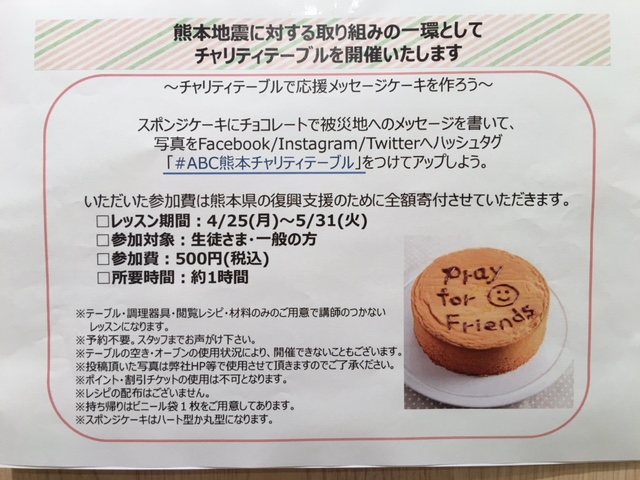 熊本地震に対する取り組みの一環として
チャリティテーブルを開催いたします
～チャリティテーブルで応援メッセージケーキを作ろう～
スポンジケーキにチョコレートで被災地へのメッセージを書いて、
写真をFacebook/Instagram/Twitterへハッシュタグ
「#ABC熊本チャリティテーブル」をつけてアップしよう。
いただいた参加費は熊本県の復興支援のために全額寄付させていただきます。
□レッスン期間：4/25(月)～5/31(火)
□参加対象：生徒さま・一般の方
□参加費：500円(税込)
□所要時間：約1時間
※テーブル・調理器具・閲覧レシピ・材料のみのご用意で講師のつかない
レッスンになります。
※予約不要。スタッフまでお声がけ下さい。
※テーブルの空き・オーブンの使用状況により、開催できないこともございます。
※投稿頂いた写真は弊社HP等で使用させて頂きますのでご了承ください。
※ポイント・割引チケットの使用は不可となります。
※レシピの配布はございません。
※持ち帰りはビニール袋１枚をご用意してあります。
※スポンジケーキはハート型か丸型になります。
Pray
for
Friends